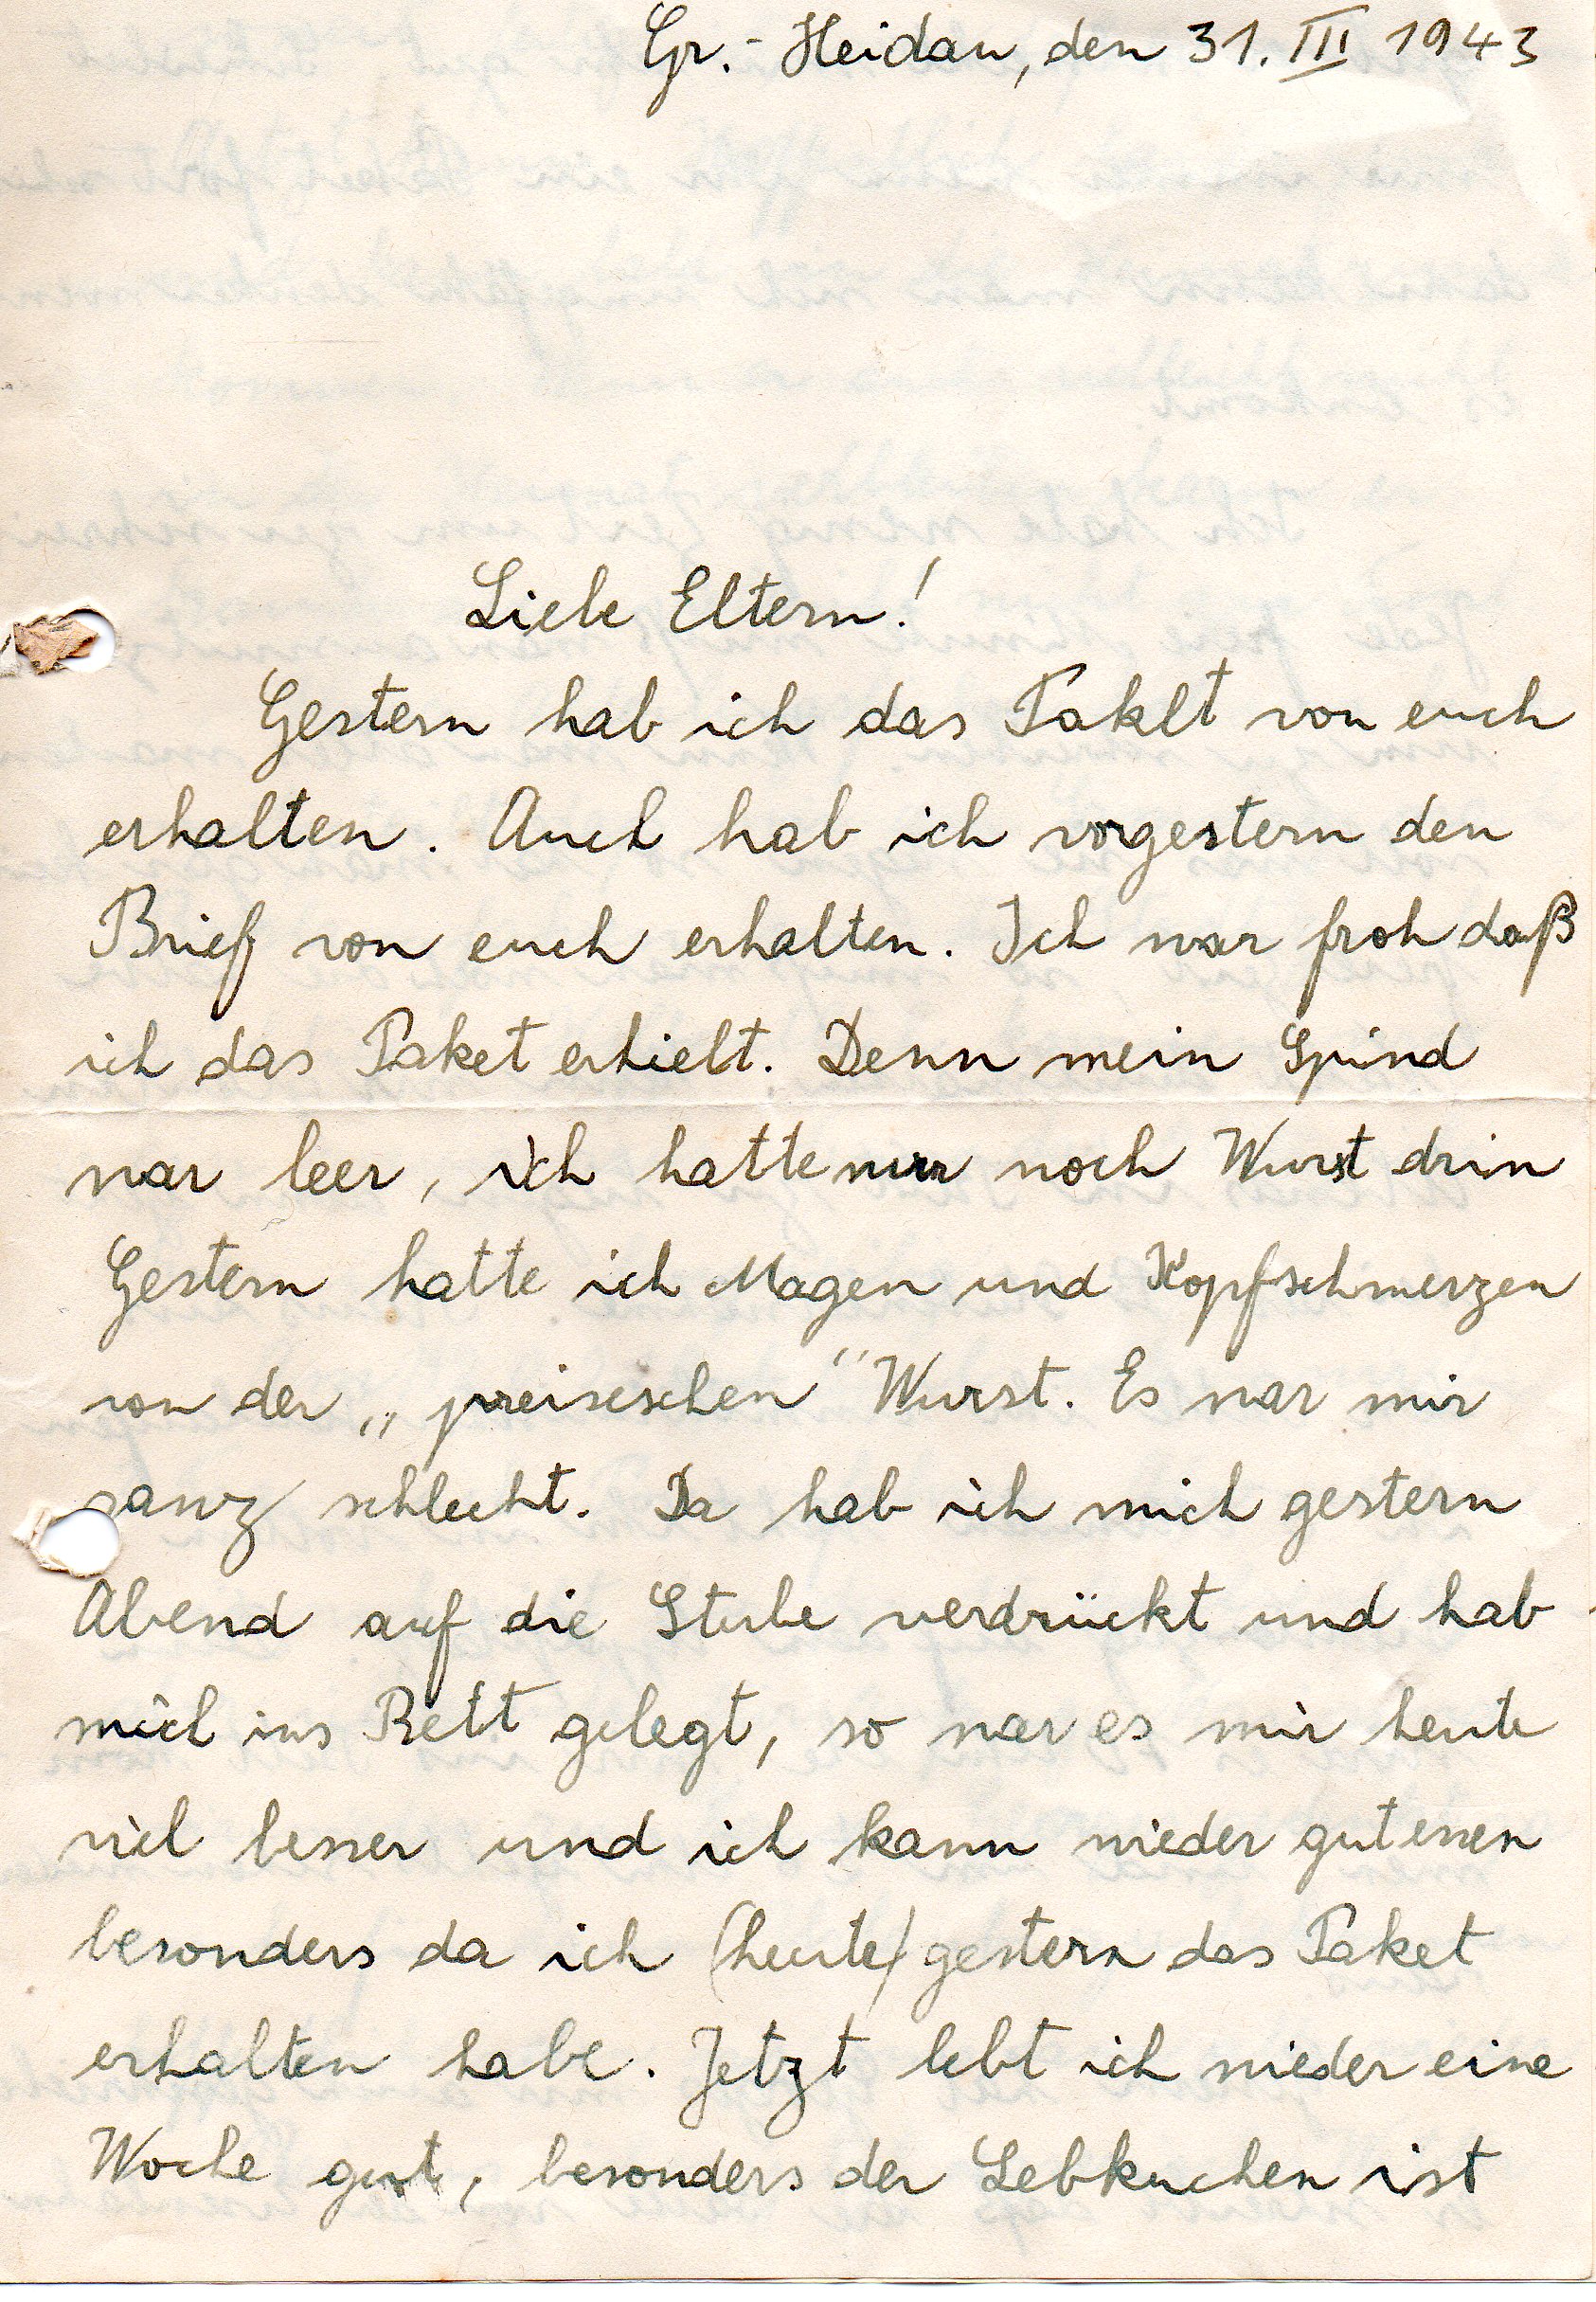 Gr.- Heidau, den 31. III 1943
Liebe Eltern!
Gestern hab ich das Paklt von euch
erhalten. Auch hab ich vorgestern den
Brief von euch erhalten. Ich war froh daß
ich das Paket erhielt. Denn mein Spind
war leer, ich hatte nur noch Wurst drin
Gestern hatte ich Magen und Kopfschmerzen
von der „preiseschen" Wurst. Es war mir
ganz schlecht. Da hab ich mich gestern
Abend auf die Stube verdrückt und hab
mich ins Bett gelegt, so war es mir heute
viel besser und ich kann wieder gut essen
besonders da ich (heute) gestern das Paket
erhalten habe. Jetzt lebt ich wieder eine
Woche gut, besonders der Lebkuchen ist